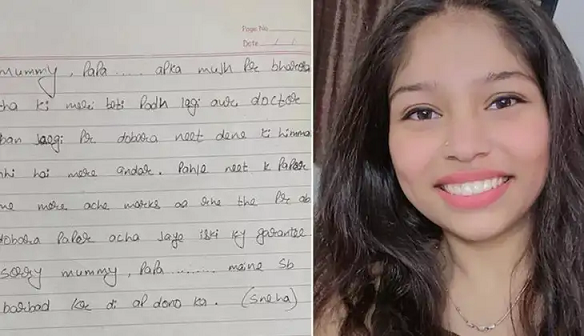 Page No.
Date / /
mummy, PaPa ..... apka mujh Pe bharosa
tha ki meri beti Padh legi aur doctor
ban jaegi Pr dobara neet dene ki himma
nhi hai mere andar. Pahle neet k PaPer
me mere ache marks aa rhe the Pr ab
dobara PaPer acha jaye iski ky garantee
sorry mummy, PaPa ........ maine sb
barbad kr di aP dono ka. (Sneha)